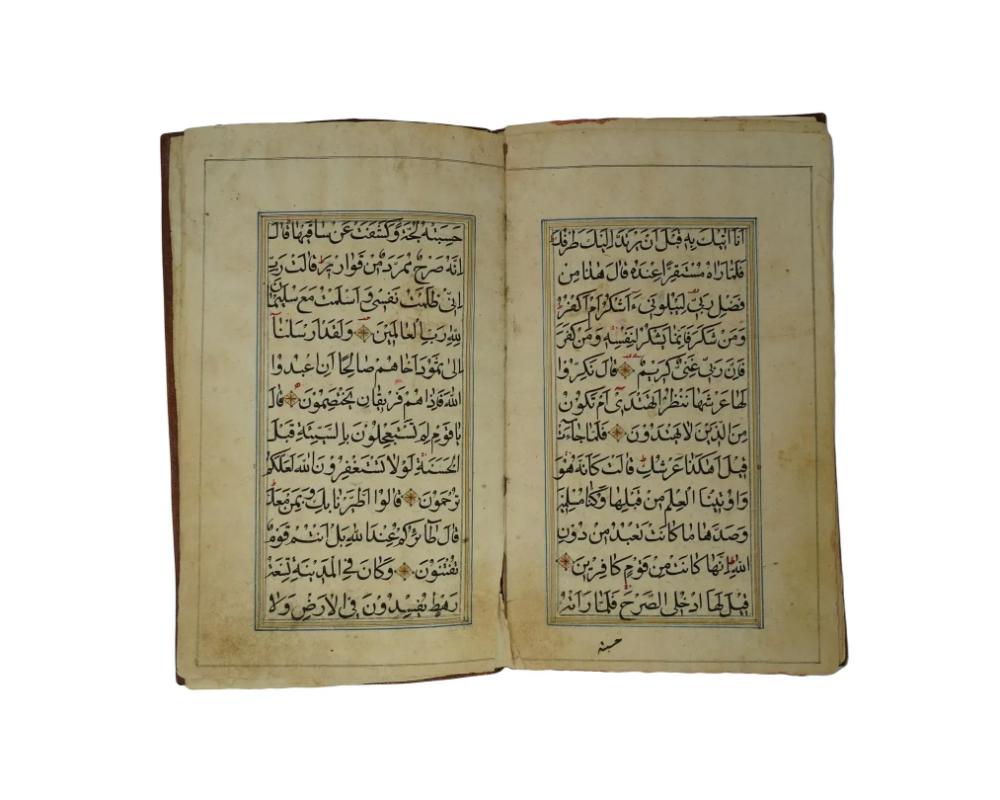 انا اتيك به قبل ان يرتد اليك طرفك
فلما راه مستقرا عنده قال هذا من
فضل ربي ليبلوني ءاشكر ام اكفر
ومن شكر فانما يشكر لنفسه ومن كفر
فان ربي غني كريم قال نكروا
لها عرشها ننظر اتهتدي ام تكون
من الذين لا يهتدون فلما جاءت
قيل اهكذا عرشك قالت كانه هو
واوتينا العلم من قبلها وكنا مسلمين
وصدها ما كانت تعبد من دون
الله انها كانت من قوم كافرين
قيل لها ادخلي الصرح فلما راته
حسبته
حسبته لجة وكشفت عن ساقيها قال
انه صرح ممرد من قوارير قالت رب
اني ظلمت نفسي واسلمت مع سليمان
لله رب العالمين ولقد ارسلنا
الى ثمود اخاهم صالحا ان اعبدوا
الله فاذا هم فريقان يختصمون قال
يا قوم لم تستعجلون بالسيئة قبل
الحسنة لولا تستغفرون الله لعلكم
ترحمون قالوا اطيرنا بك وبمن معك
قال طائركم عند الله بل انتم قوم
تفتنون وكان في المدينة تسعة
رهط يفسدون في الارض ولا